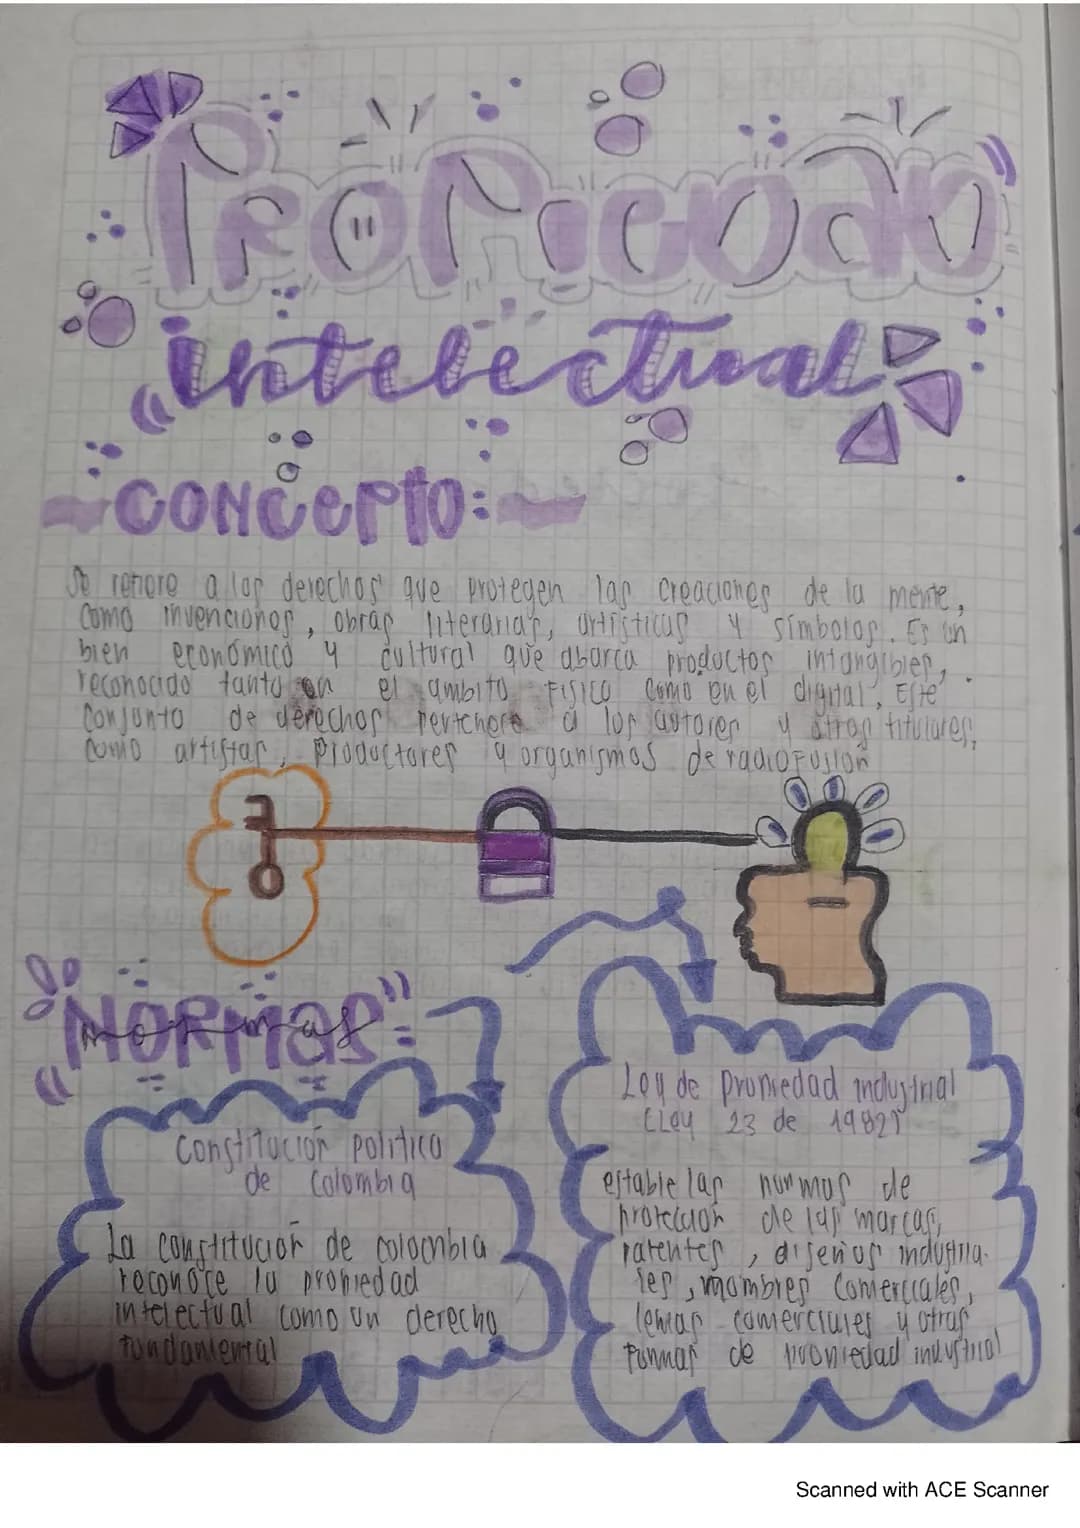 Propiedad
intelectual
Concepto:
Se refiere a los derechos que protegen las creaciones de la mente,
como invenciones, obras literarias, artísticas y símbolos. Es un
bien económico y cultural que abarca productos intangibles,
reconocido tanto en el ambito Fisico como en el digital, Este
conjunto de derechos pertenece a los autores y otros titulares,
como artistas, productores y organismos de radioFusión
Normas:
Constitución politica
de Colombia
La constitución de colombia
reconoce la propiedad
intelectual como un derecho
fundamental
Ley de Propiedad industrial
(Ley 23 de 1982)
establelas normas de
protección de las marcas,
patentes, diseños industria-
les, mombres comerciales,
lemas comerciales y otras
Formas de propiedad industrial
Scanned with ACE Scanner